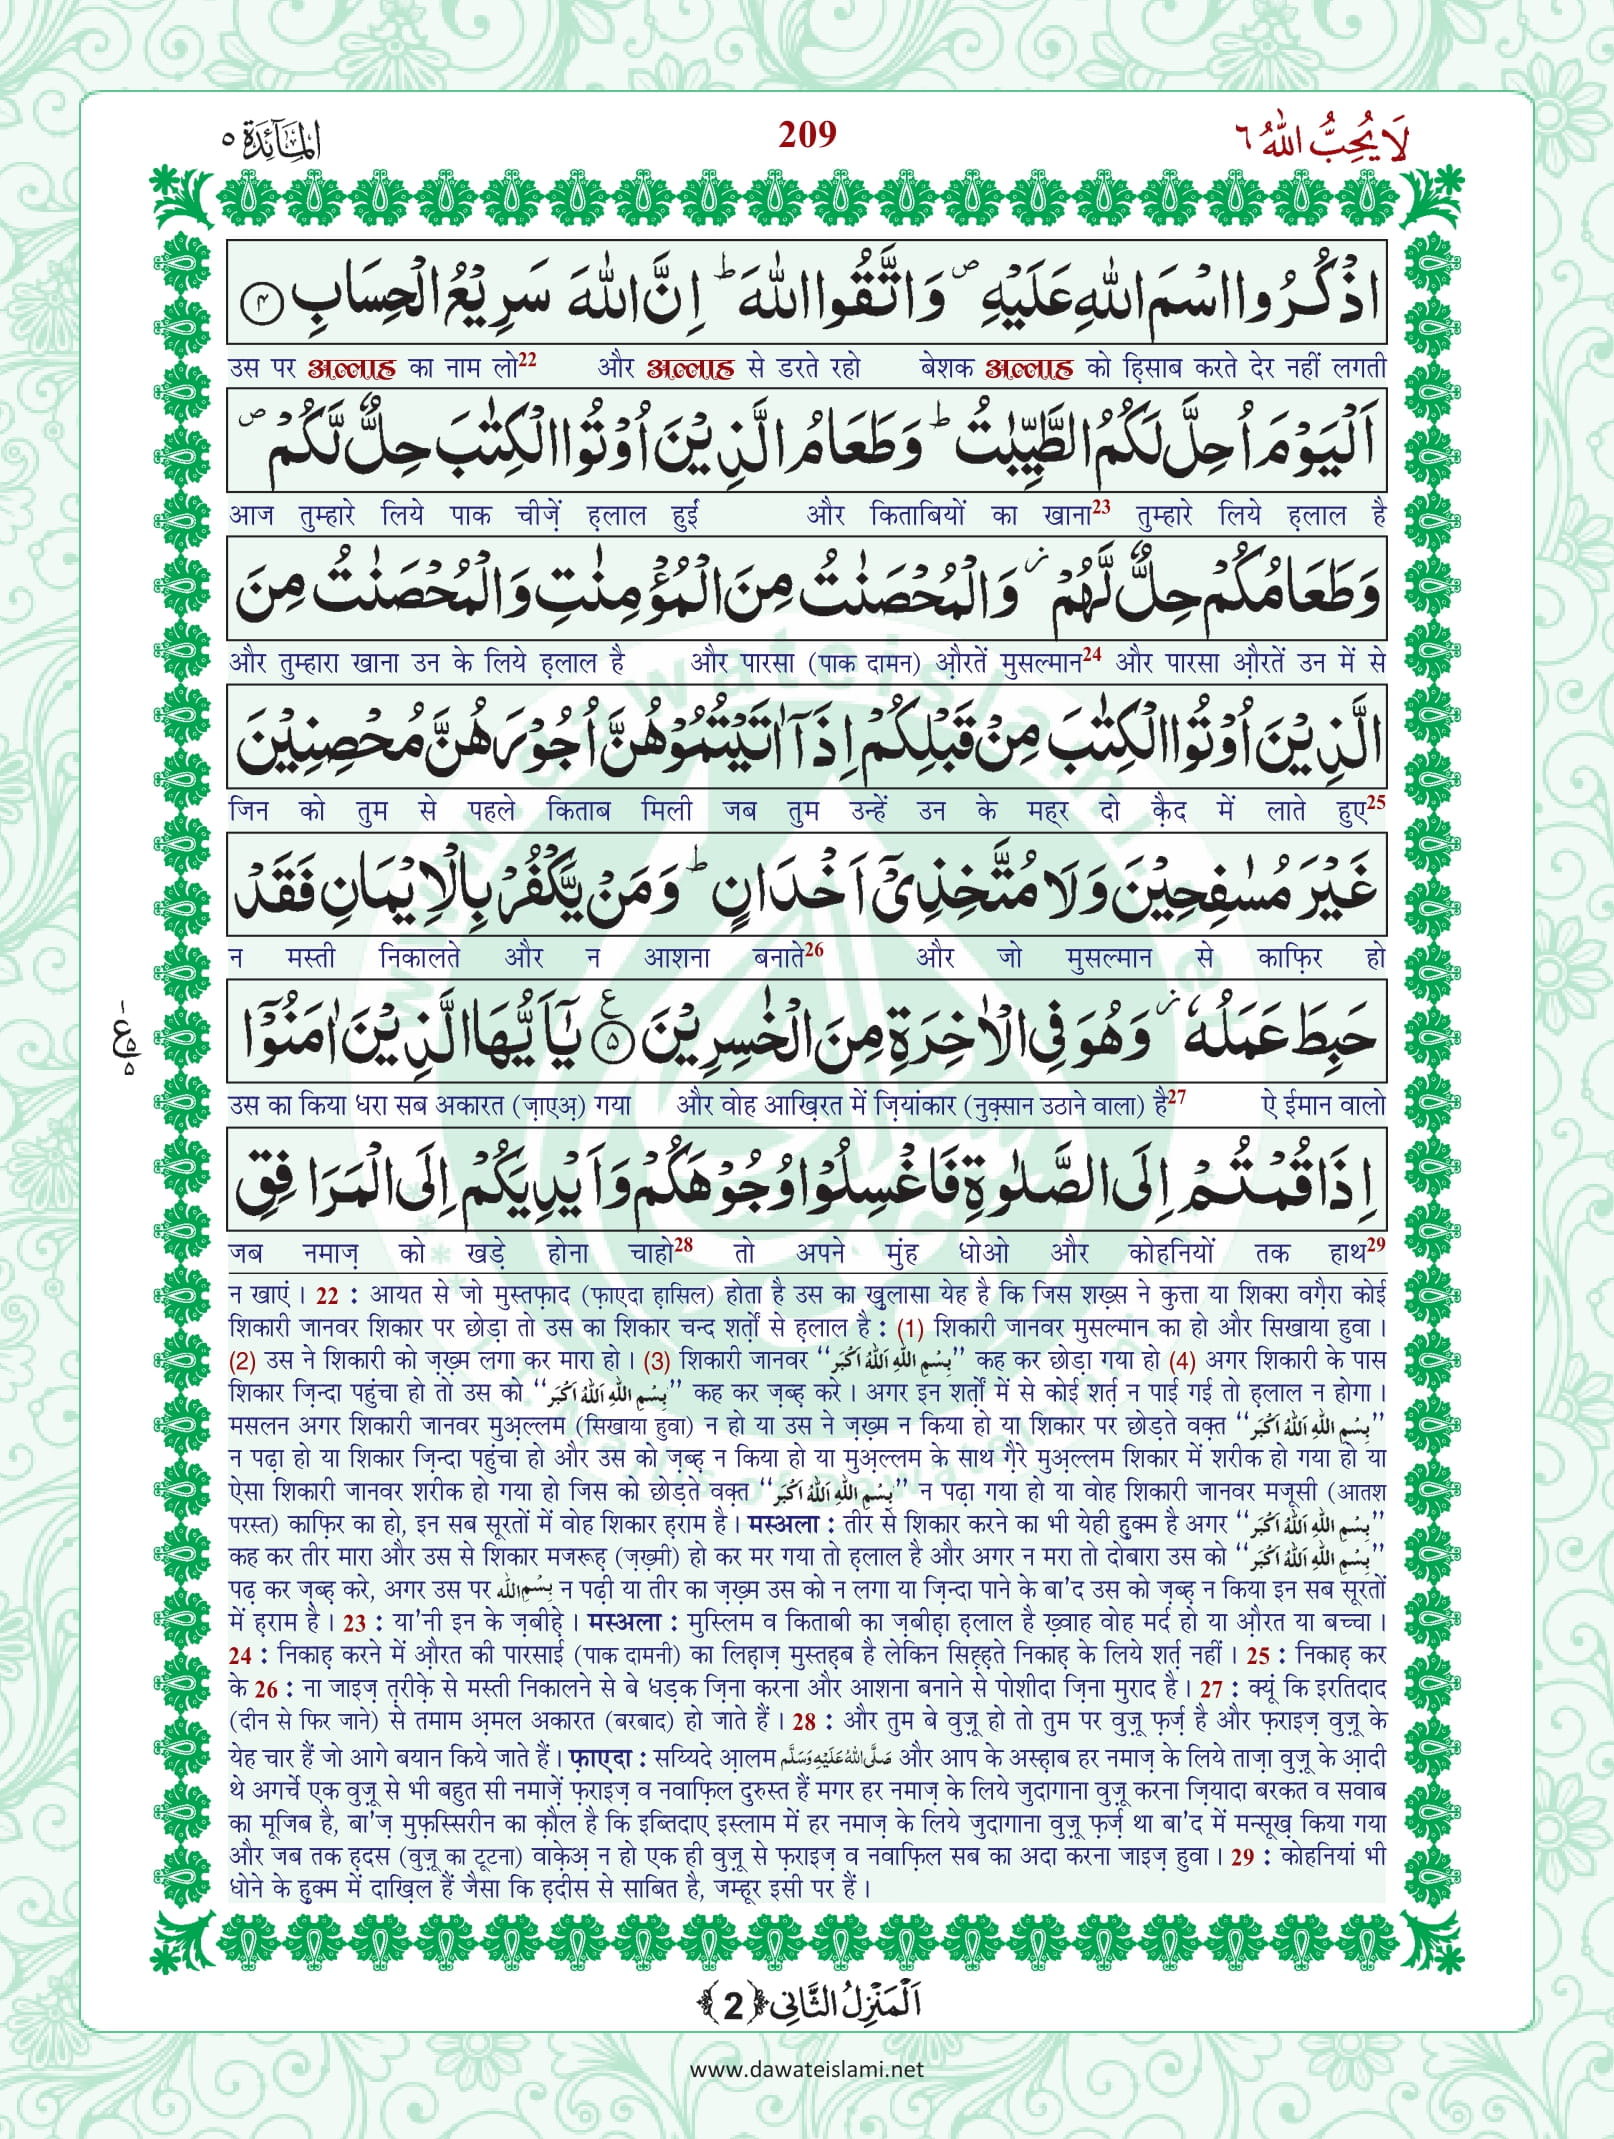 لَا يُحِبُّ اللّٰهُ ٦
209
اَلْمَآئِدَة ٥
اذْكُرُوا اسْمَ اللّٰهِ عَلَيْهِ ۪ وَاتَّقُوا اللّٰهَ ؕ اِنَّ اللّٰهَ سَرِيْعُ الْحِسَابِ ۝۴
उस पर अल्लाह का नाम लो22 और अल्लाह से डरते रहो बेशक अल्लाह को हिसाब करते देर नहीं लगती
اَلْيَوْمَ اُحِلَّ لَكُمُ الطَّيِّبٰتُ ؕ وَطَعَامُ الَّذِيْنَ اُوْتُوا الْكِتٰبَ حِلٌّ لَّكُمْ ۪
आज तुम्हारे लिये पाक चीज़ें ह़लाल हुई और किताबियों का खाना23 तुम्हारे लिये ह़लाल है
وَطَعَامُكُمْ حِلٌّ لَّهُمْ ؗ وَالْمُحْصَنٰتُ مِنَ الْمُؤْمِنٰتِ وَالْمُحْصَنٰتُ مِنَ
और तुम्हारा खाना उन के लिये ह़लाल है और पारसा (पाक दामन) औ़रतें मुसल्मान24 और पारसा औ़रतें उन में से
الَّذِيْنَ اُوْتُوا الْكِتٰبَ مِنْ قَبْلِكُمْ اِذَاۤ اٰتَيْتُمُوْهُنَّ اُجُوْرَهُنَّ مُحْصِنِيْنَ
जिन को तुम से पहले किताब मिली जब तुम उन्हें उन के मह्र दो क़ैद में लाते हुए25
غَيْرَ مُسٰفِحِيْنَ وَلَا مُتَّخِذِيْۤ اَخْدَانٍ ؕ وَمَنْ يَّكْفُرْ بِالْاِيْمَانِ فَقَدْ
न मस्ती निकालते और न आशना बनाते26 और जो मुसल्मान से काफ़िर हो
حَبِطَ عَمَلُهٗ ؗ وَهُوَ فِي الْاٰخِرَةِ مِنَ الْخٰسِرِيْنَ ۝۵ ع يٰۤاَيُّهَا الَّذِيْنَ اٰمَنُوْۤا
ع ٥ ٥
उस का किया धरा सब अकारत (ज़ाएअ़) गया और वोह आख़िरत में ज़ियांकार (नुक़्सान उठाने वाला) है27 ऐ ईमान वालो
اِذَا قُمْتُمْ اِلَى الصَّلٰوةِ فَاغْسِلُوْا وُجُوْهَكُمْ وَاَيْدِيَكُمْ اِلَى الْمَرَافِقِ
जब नमाज़ को खड़े होना चाहो28 तो अपने मुंह धोओ और कोहनियों तक हाथ29
न खाएं । 22 : आयत से जो मुस्तफ़ाद (फ़ाएदा ह़ासिल) होता है उस का खुलासा येह है कि जिस शख़्स ने कुत्ता या शिक्रा वग़ैरा कोई
शिकारी जानवर शिकार पर छोड़ा तो उस का शिकार चन्द शर्तों से ह़लाल है : (1) शिकारी जानवर मुसल्मान का हो और सिखाया हुवा ।
(2) उस ने शिकारी को ज़ख़्म लगा कर मारा हो । (3) शिकारी जानवर ‘‘بِسْمِ اللّٰهِ اَللّٰهُ اَكْبَر’’ कह कर छोड़ा गया हो (4) अगर शिकारी के पास
शिकार ज़िन्दा पहुंचा हो तो उस को ‘‘بِسْمِ اللّٰهِ اَللّٰهُ اَكْبَر’’ कह कर ज़ब्ह़ करे । अगर इन शर्तों में से कोई शर्त न पाई गई तो ह़लाल न होगा ।
मसलन अगर शिकारी जानवर मुअ़ल्लम (सिखाया हुवा) न हो या उस ने ज़ख़्म न किया हो या शिकार पर छोड़ते वक़्त ‘‘بِسْمِ اللّٰهِ اَللّٰهُ اَكْبَر’’
न पढ़ा हो या शिकार ज़िन्दा पहुंचा हो और उस को ज़ब्ह़ न किया हो या मुअ़ल्लम के साथ ग़ैरे मुअ़ल्लम शिकार में शरीक हो गया हो या
ऐसा शिकारी जानवर शरीक हो गया हो जिस को छोड़ते वक़्त ‘‘بِسْمِ اللّٰهِ اَللّٰهُ اَكْبَر’’ न पढ़ा गया हो या वोह शिकारी जानवर मजूसी (आतश
परस्त) काफ़िर का हो, इन सब सूरतों में वोह शिकार ह़राम है । मस्अला : तीर से शिकार करने का भी येही हुक्म है अगर ‘‘بِسْمِ اللّٰهِ اَللّٰهُ اَكْبَر’’
कह कर तीर मारा और उस से शिकार मजरूह़ (ज़ख़्मी) हो कर मर गया तो ह़लाल है और अगर न मरा तो दोबारा उस को ‘‘بِسْمِ اللّٰهِ اَللّٰهُ اَكْبَر’’
पढ़ कर ज़ब्ह़ करे, अगर उस पर بِسْمِ اللّٰه न पढ़ी या तीर का ज़ख़्म उस को न लगा या ज़िन्दा पाने के बा'द उस को ज़ब्ह़ न किया इन सब सूरतों
में ह़राम है । 23 : या'नी इन के ज़बीहे़ । मस्अला : मुस्लिम व किताबी का ज़बीह़ा ह़लाल है ख़्वाह वोह मर्द हो या औ़रत या बच्चा ।
24 : निकाह़ करने में औ़रत की पारसाई (पाक दामनी) का लिह़ाज़ मुस्तह़ब है लेकिन सिह़्ह़ते निकाह़ के लिये शर्त़ नहीं । 25 : निकाह़ कर
के 26 : ना जाइज़ त़रीक़े से मस्ती निकालने से बे धड़क ज़िना करना और आशना बनाने से पोशीदा ज़िना मुराद है । 27 : क्यूं कि इरतिदाद
(दीन से फिर जाने) से तमाम अ़मल अकारत (बरबाद) हो जाते हैं । 28 : और तुम बे वुज़ू हो तो तुम पर वुज़ू फ़र्ज़ है और फ़राइज़ वुज़ू के
येह चार हैं जो आगे बयान किये जाते हैं । फ़ाएदा : सय्यिदे आ़लम صَلَّى اللّٰهُ عَلَيْهِ وَسَلَّم और आप के अस्ह़ाब हर नमाज़ के लिये ताज़ा वुज़ू के आ़दी
थे अगर्चे एक वुज़ू से भी बहुत सी नमाज़ें फ़राइज़ व नवाफ़िल दुरुस्त हैं मगर हर नमाज़ के लिये जुदागाना वुज़ू करना ज़ियादा बरकत व सवाब
का मूजिब है, बा'ज़ मुफ़स्सिरीन का क़ौल है कि इब्तिदाए इस्लाम में हर नमाज़ के लिये जुदागाना वुज़ू फ़र्ज़ था बा'द में मन्सूख़ किया गया
और जब तक ह़दस (वुज़ू का टूटना) वाके़अ़ न हो एक ही वुज़ू से फ़राइज़ व नवाफ़िल सब का अदा करना जाइज़ हुवा । 29 : कोहनियां भी
धोने के हुक्म में दाख़िल हैं जैसा कि ह़दीस से साबित है, जम्हूर इसी पर हैं ।
اَلْمَنْزِلُ الثَّانِی ﴿2﴾
www.dawateislami.net